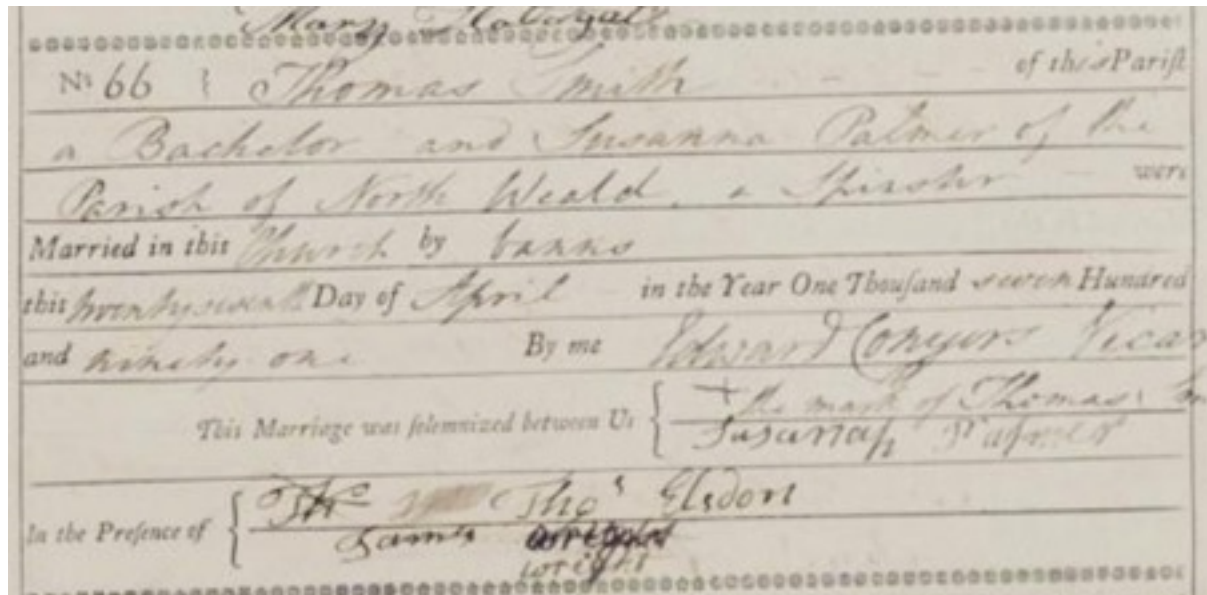 Mary
No. 66 } Thomas Smith of this Parish
a Bachelor and Susanna Palmer of the
Parish of North Weald, a Spinster were
Married in this Church by banns
this twenty seventh Day of April in the Year One Thousand seven Hundred
and ninety one By me Edward Conyers Vicar
This Marriage was solemnized between Us { + the mark of Thomas
Susanah Palmer
In the Presence of { Tho Thos Elsdon
James
wright